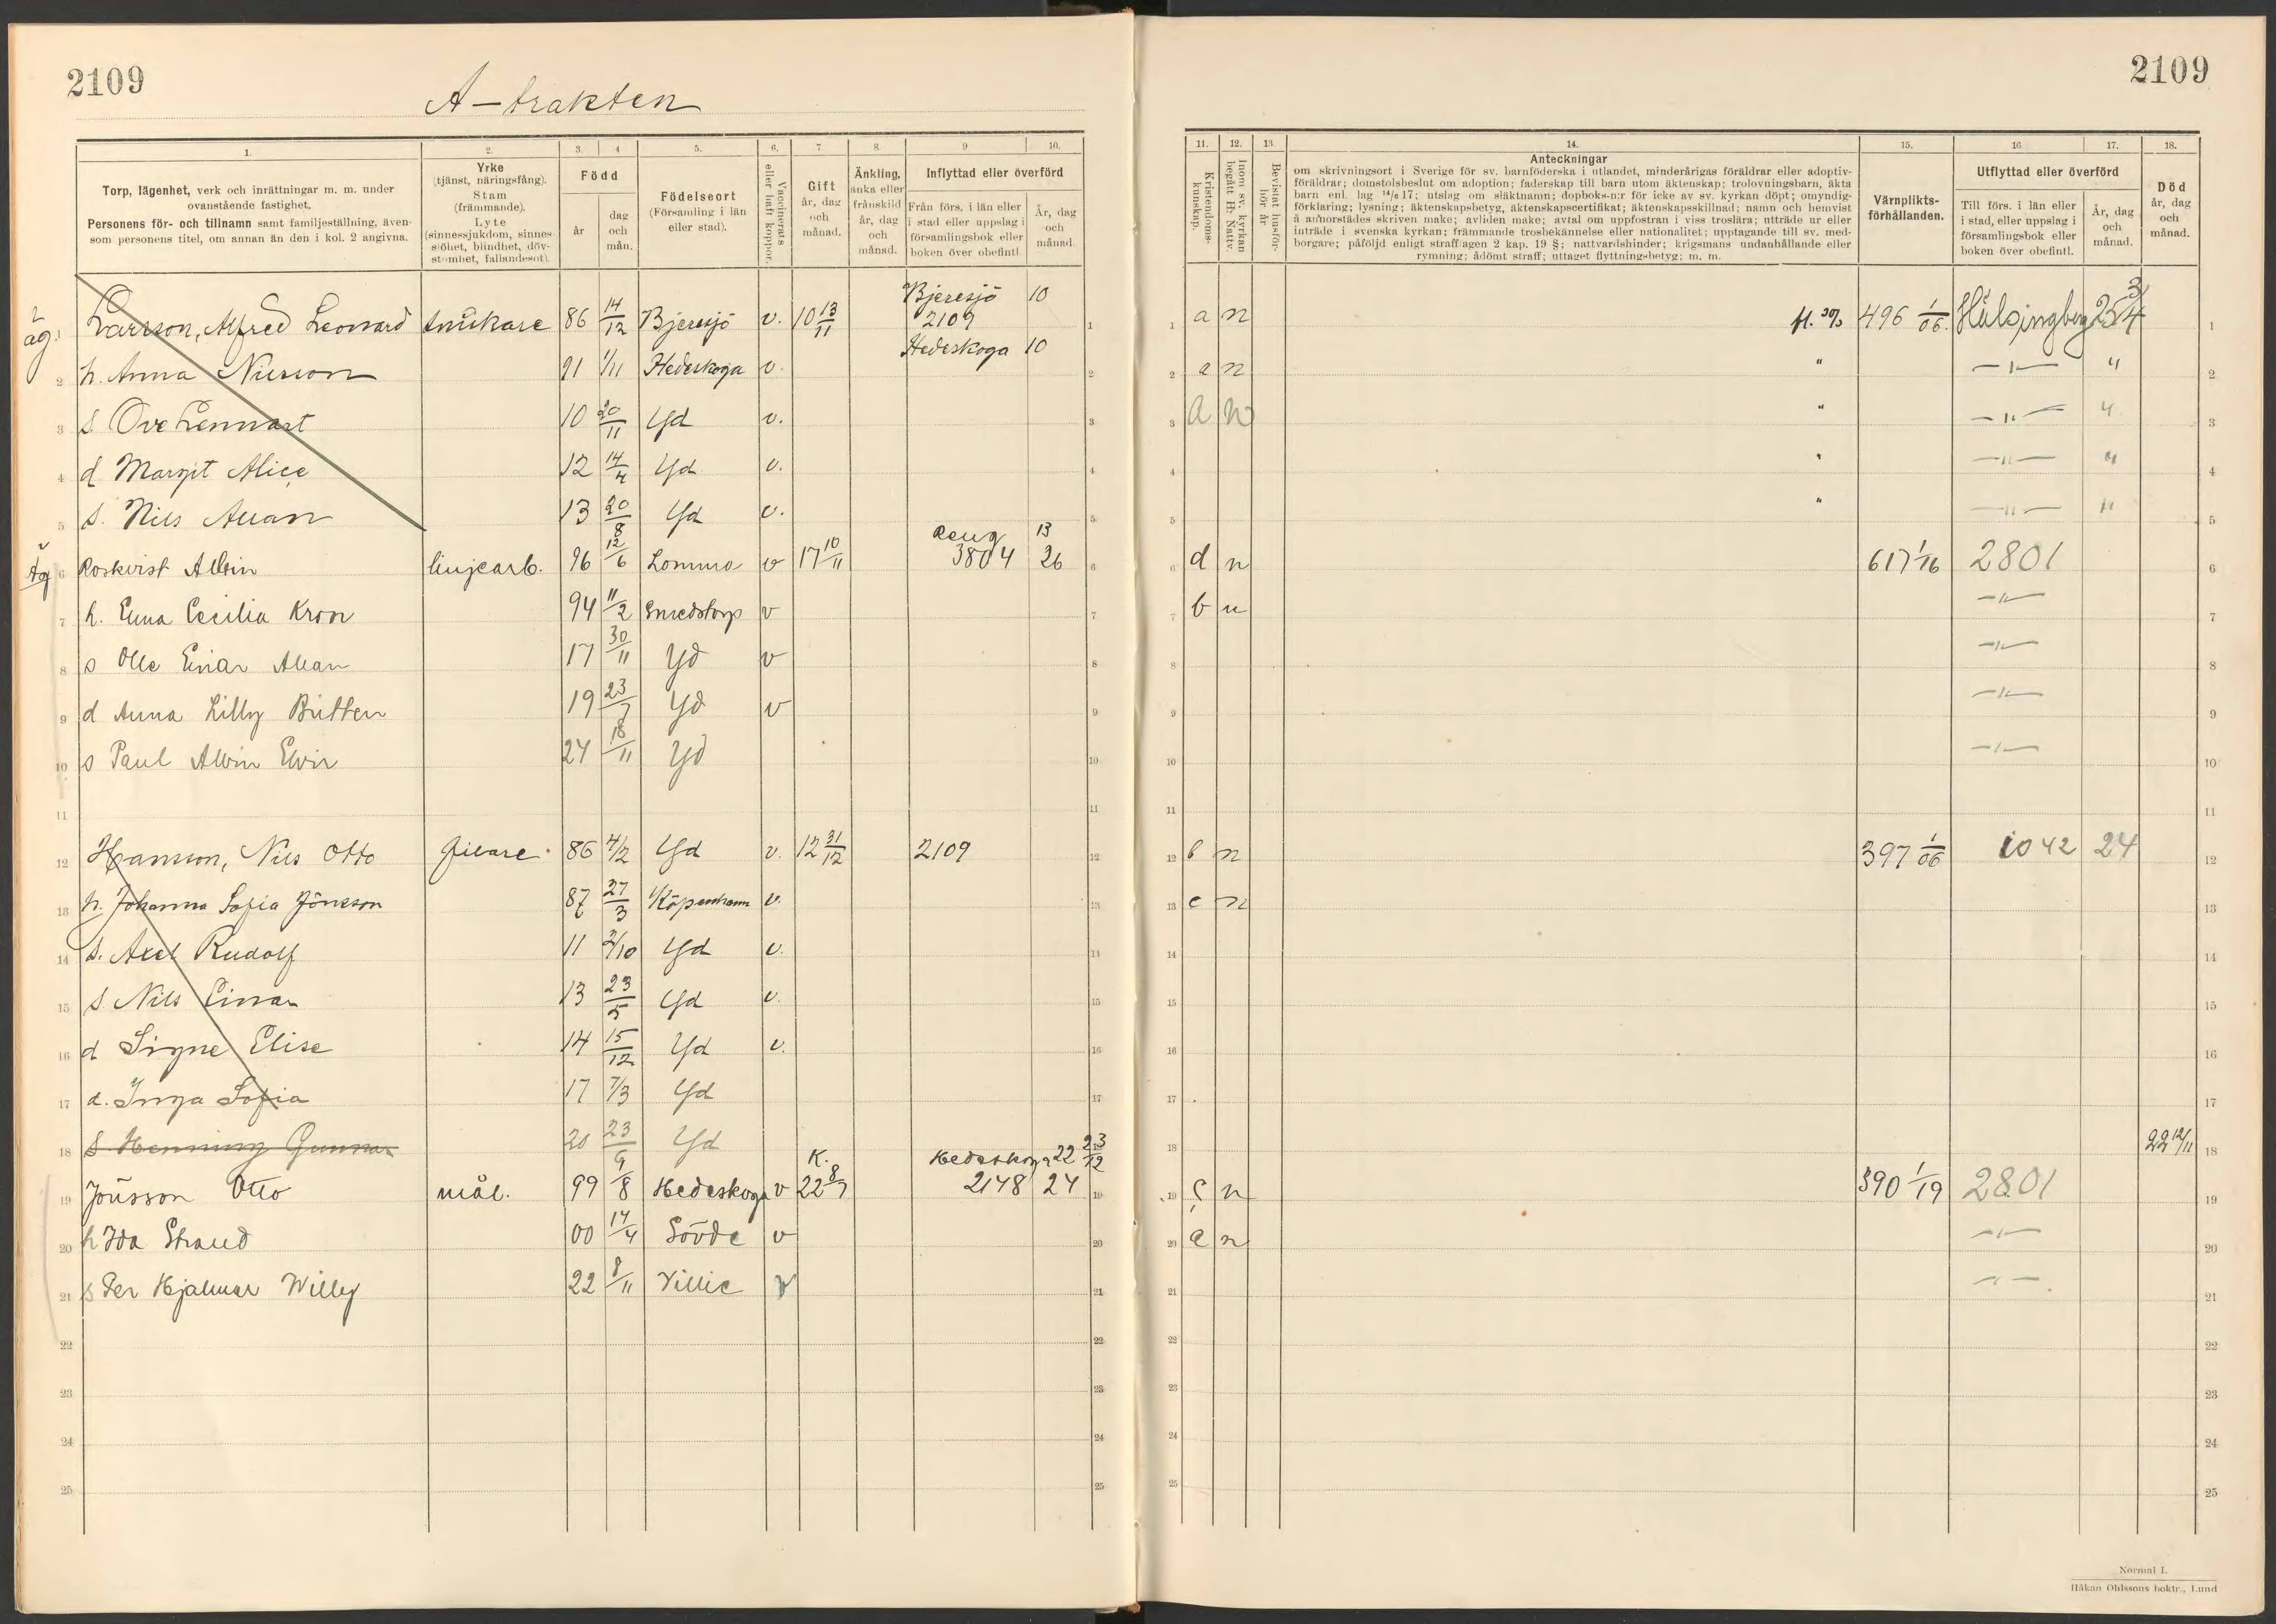 2109
A-trakten
1. 2. 3. 4 5. 6. 7 8. 9 10.
Torp, lägenhet, verk och inrättningar m. m. under
ovanstående fastighet.
Personens för- och tillnamn samt familjeställning, även-
som personens titel, om annan än den i kol. 2 angivna.
Yrke
(tjänst, näringsfång).
Stam
(främmande).
Lyte
(sinnessjukdom, sinnes
slöhet, blindhet, döv-
stumhet, fallandesot).
Född
år
dag
och
mån.
Födelseort
(Församling i län
eller stad).
Vaccinerats
eller haft koppor.
Gift
år, dag
och
månad.
Änkling,
änka eller
frånskild
år, dag
och
månad.
Inflyttad eller överförd
Från förs. i län eller
i stad eller uppslag i
församlingsbok eller
boken över obefintl.
År, dag
och
månad.
Bjeresjö 10
äg. 1 Larsson, Alfred Leonard snickare 86 14/12 Bjeresjö v. 10 13/11 2109 1
Hedeskoga 10
2 h. Anna Nilsson 91 1/11 Hedeskoga v. 2
3 s. Ove Lennart 10 20/11 Yd v. 3
4 d Margit Alice 12 14/4 Yd v. 4
5 s. Nils Allan 13 20/8 Yd v. 5
Reng 13
äg 6 Roskvist Albin linjearb. 96 12/6 Lomma v 17 10/11 3804 26 6
7 h. Elina Cecilia Kron 94 11/2 Smedstorp v 7
8 s Olle Einar Allan 17 30/11 Yd v 8
9 d Anna Lilly Britten 19 23/7 Yd v 9
10 s Paul Albin Elvir 24 18/11 Yd 10
11 11
12 Hansson, Nils Otto filare 86 4/2 Yd v. 12 31/12 2109 12
13 h. Johanna Sofia Jönsson 87 27/3 Köpenhamn v. 13
14 s. Axel Rudolf 11 2/10 Yd v. 14
15 s Nils Einar 13 23/5 Yd v. 15
16 d Signe Elise 14 15/12 Yd v. 16
17 d. Inga Sofia 17 7/3 Yd 17
18 s. Henning Gunnar 20 23/9 Yd Hedeskoga 22 23/12
19 Jönsson Otto mål. 99 9/8 Hedeskoga v K. 22 8/7 2148 24 19
20 h Ida Strand 00 14/4 Sövde v 20
21 s Per Hjalmar Willy 22 8/11 Villie v 21
22 22
23 23
24 24
25 25
2109
11. 12. 13. 14. 15. 16 17. 18.
Kristendoms-
kunskap.
Inom sv. kyrkan
begått H: Nattv.
Bevistat husför-
hör år
Anteckningar
om skrivningsort i Sverige för sv. barnföderska i utlandet, minderårigas föräldrar eller adoptiv-
föräldrar; domstolsbeslut om adoption; faderskap till barn utom äktenskap; trolovningsbarn, äkta
barn enl. lag 14/6 17; utslag om släktnamn; dopboks-n:r för icke av sv. kyrkan döpt; omyndig-
förklaring; lysning; äktenskapsbetyg, äktenskapscertifikat; äktenskapsskillnad; namn och hemvist
å annorstädes skriven make; avliden make; avtal om uppfostran i viss troslära; utträde ur eller
inträde i svenska kyrkan; främmande trosbekännelse eller nationalitet; upptagande till sv. med-
borgare; påföljd enligt strafflagen 2 kap. 19 §; nattvardshinder; krigsmans undanhållande eller
rymning; ådömt straff; uttaget flyttningsbetyg; m. m.
Värnplikts-
förhållanden.
Utflyttad eller överförd
Till förs. i län eller
i stad, eller uppslag i
församlingsbok eller
boken över obefintl.
År, dag
och
månad.
Död
år, dag
och
månad.
1 a n fl. 30/3 496 1/06 Hälsingborg 25 3/4 1
2 a n " -"- " 2
3 a n " -"- " 3
4 " -"- " 4
5 " -"- " 5
6 d n 617 1/16 2801 6
7 b n -"- 7
8 -"- 8
9 -"- 9
10 -"- 10
11 11
12 b n 397 1/06 1042 24 12
13 c n 13
14 14
15 15
16 16
17 17
18 22 12/11 18
19 c n 390 1/19 2801 19
20 a n -"- 20
21 -"- 21
22 22
23 23
24 24
25 25
Normal I.
Håkan Ohlssons boktr., Lund